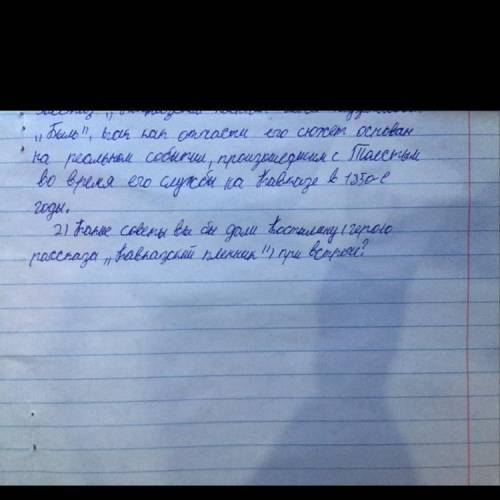 „Быль", так как отчасти его сюжет основан
на реальном событии, произошедшим с Толстым
во время его службы на Кавказе в 1850-е
годы.
2) Какие советы вы бы дали Костылину (герою
рассказа „Кавказский пленник") при встречи?